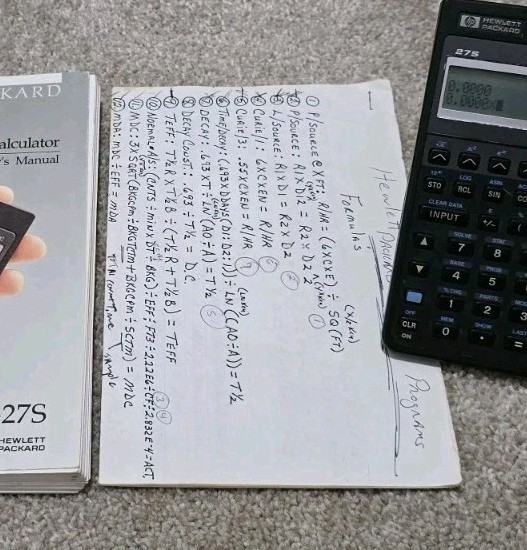 KARD
alculator
's Manual
-27S
HEWLETT
PACKARD
Hewlett Packard Programs
Formulas
① P/SOURCE @ XFT: R/HR = (6XCXE) ÷ SQ(FT) ①
② P/SOURCE: R1XD12 = R2XD22
③ L/SOURCE: R1XD1 = R2XD2 ②
④ CURIE/1: 6XCXEN = R/HR
⑤ CURIE/3: .55XCXEN = R/HR ⑦
⑥ TIME/DECAY: (.693 X DDAYS(D1:D2:1)) ÷ LN((AO÷A)) = T½
⑦ DECAY: .693XT ÷ LN(AO÷A) = T½ ⑤
⑧ DECAY CONST: .693 ÷ T½ = D.C.
⑨ TEFF: T½R X T½B ÷ (T½R + T½B) = TEFF
⑩ NORMAL Act: (CNTS ÷ MIN X DT - BKG) ÷ EFF ÷ FT3 ÷ 2.22E6 ÷ CF ÷ 2.832E-4 = ACT, ③ ④
⑪ MDC: 3 X SQRT(BKGCPM ÷ BKGTCTM + BKGCPM ÷ SCTM) = MDC
⑫ MDA: MDC ÷ EFF = MDA
HEWLETT
PACKARD
27S
0.0000
0.0000
STO
LOG
RCL
ASIN
SIN
CO
CLEAR DATA
INPUT
+/-
(
SOLVE
7
8
4
5
PARTS
1
2
3
OFF
CLR
ON
MEM
0
SHOW
.
LAST
=